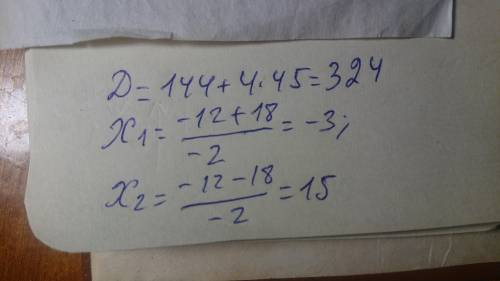 Д = 144 + 4·45 = 324
x₁ = (-12 + 18)/(-2) = -3;
x₂ = (-12 - 18)/(-2) = 15